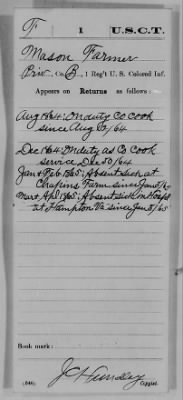 F 1 U.S.C.T.
Mason Farmer
Priv., Co. B., 1 Reg't U. S. Colored Inf.
Appears on Returns as follows:
Aug 1864: On duty Co cook
since Aug /64
Dec 1864: On duty as Co Cook
service Dec 30/64
Jan & Feb 1865: Absent sick at
Chapins Farm since Jan 5/65
Mar & Apl 1865: Absent sick in Hospl
at Hampton Va since Jan 5/65
Book mark:
J C Hundley
(546) Copyist.